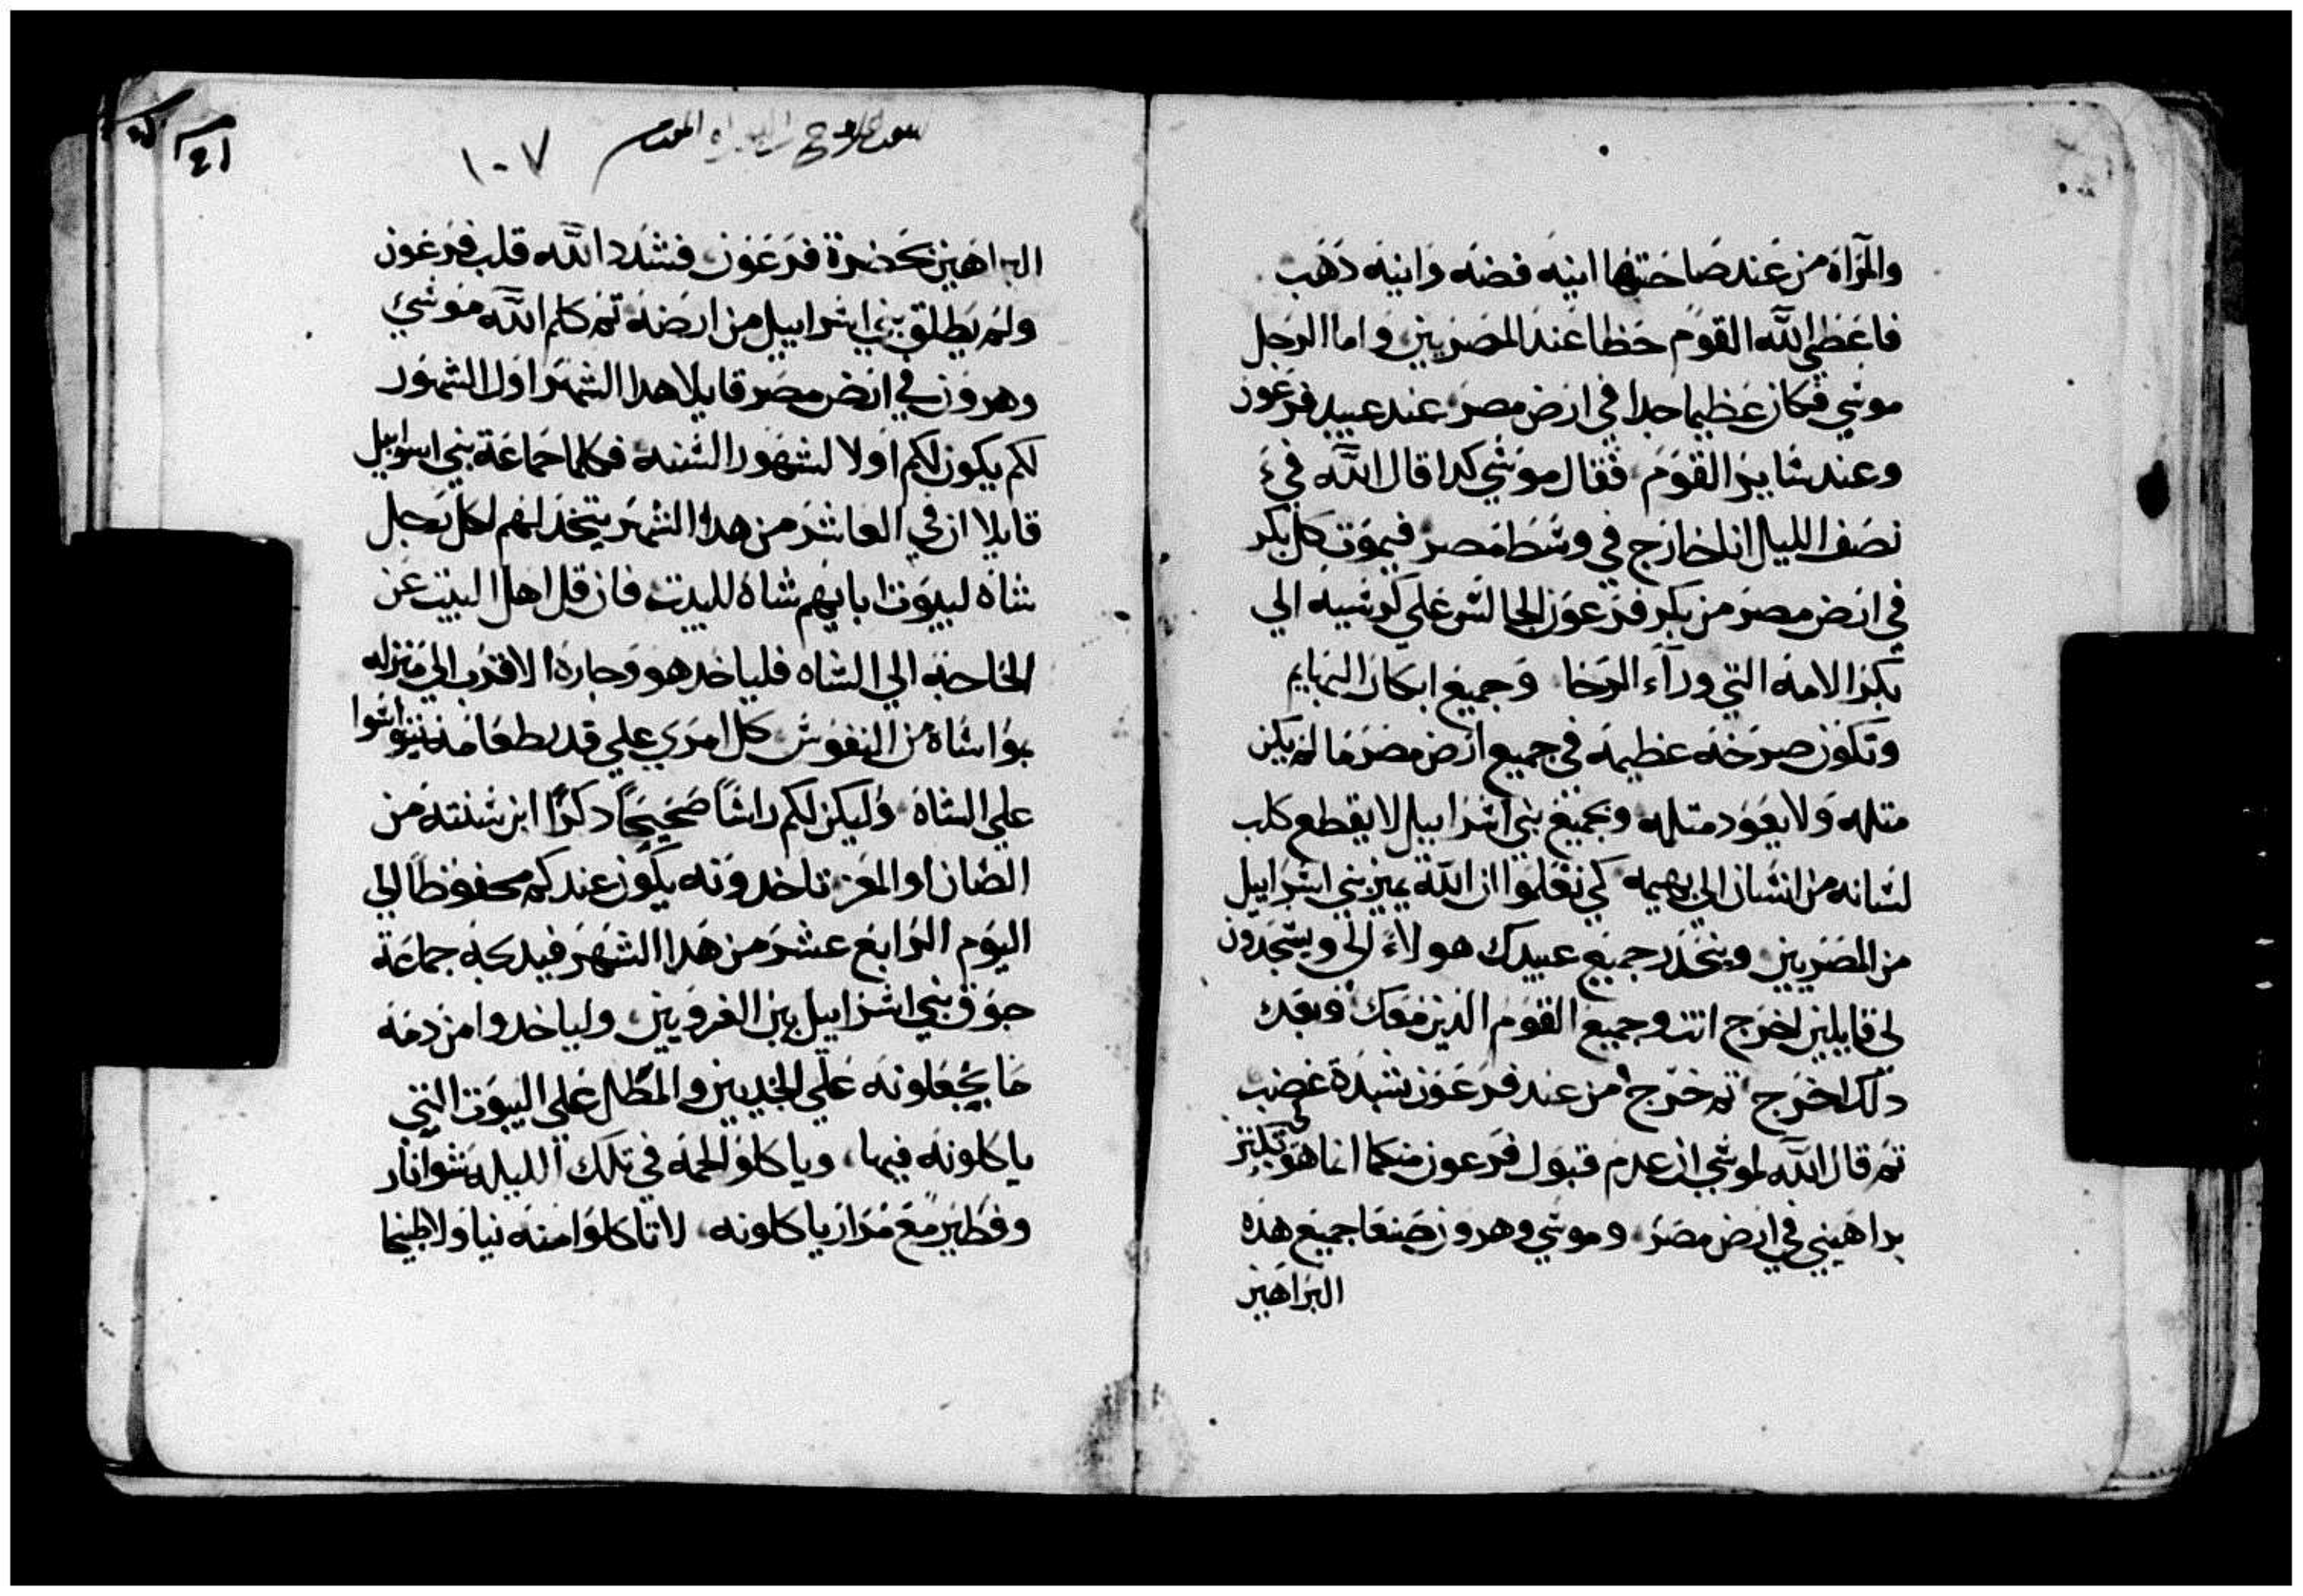 والمرآاة من عند صاحبتها انيه فضه وانيه دهب
فاعطي الله القوم حظا عند المصريين واما الرجل
موسي فكان عظيما جدا في ارض مصر عند عبيد فرعون
وعند ساير القوم فقال موسي كدا قال الله في
نصف الليل انا خارج في وسط مصر فيموت كل بكر
في ارض مصر من بكر فرعون الجالس علي كرسيه الي
بكر الامه التي ورآء الرحا وجميع ابكار البهايم
وتكون صرخه عظيمه في جميع ارض مصر ما لم يكن
متله ولا يعود متله وبجميع بني اسراييل لا يقطع كلب
لسانه من انسان الي بهيمه كي تعلموا ان الله يميز بني اسراييل
من المصريين وينحدر جميع عبيدك هولاء الي ويسجدون
لي قايلين اخرج انت وجميع القوم الذين معك وبعد
دلك اخرج تم خرج من عند فرعون بشدة غضب
تم قال الله لموسي ان عدم قبول فرعون منكما انما هو لتكتر
براهيني في ارض مصر وموسي وهرون صنعا جميع هذه
البراهين
١٠٧
البراهين بحضرة فرعون فشدد الله قلب فرعون
ولم يطلق بني اسراييل من ارضه تم كلم الله موسي
وهرون في ارض مصر قايلا هدا الشهر اول الشهور
لكم يكون لكم اولا لشهور السنه فكلما جماعة بني اسراييل
قايلا ان في العاشر من هدا الشهر يتخد لهم لكل رجل
شاه لبيوت ابايهم شاه للبيت فان قل اهل البيت عن
الحاجه الي الشاه فلياخد هو وجاره الاقرب الي منزله
بؤاشاة من النفوس كل امري علي قدر طعامه يتواسوا
علي الشاة وليكن لكم راسًا صحيحًا دكرًا ابن سنته من
الضان او المعز تاخدونه يكون عندكم محفوظًا الي
اليوم الرابع عشر من هدا الشهر فيدبحه جماعة
جوق بني اسراييل بين الغروبين ولياخدوا من دمه
ما يجعلونه علي الخديين والمطل علي البيوت التي
ياكلونه فيها وياكلو لحمه في تلك الليله شوا نار
وفطير مع مرار ياكلونه لا تاكلوا منه نيا ولا طبيخا